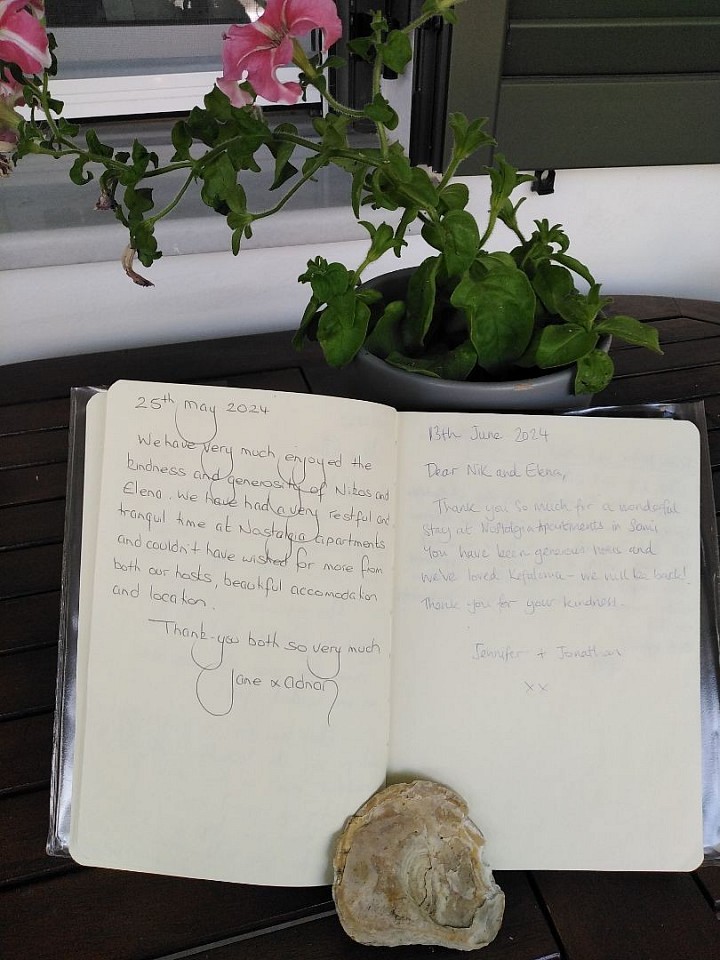 25th May 2024
We have very much enjoyed the
kindness and generosity of Nikos and
Elena. We have had a very restful and
tranquil time at Nostalgia apartments
and couldn't have wished for more from
both our hosts, beautiful accomodation
and location.
Thank-you both so very much
Jane & adnan
13th June 2024
Dear Nik and Elena,
Thank you so much for a wonderful
stay at Nostalgia Apartments in Sami
You have been generous hosts and
we've loved Kefalonia - we will be back!
Thank you for your kindness.
Jennifer + Jonathan
xx